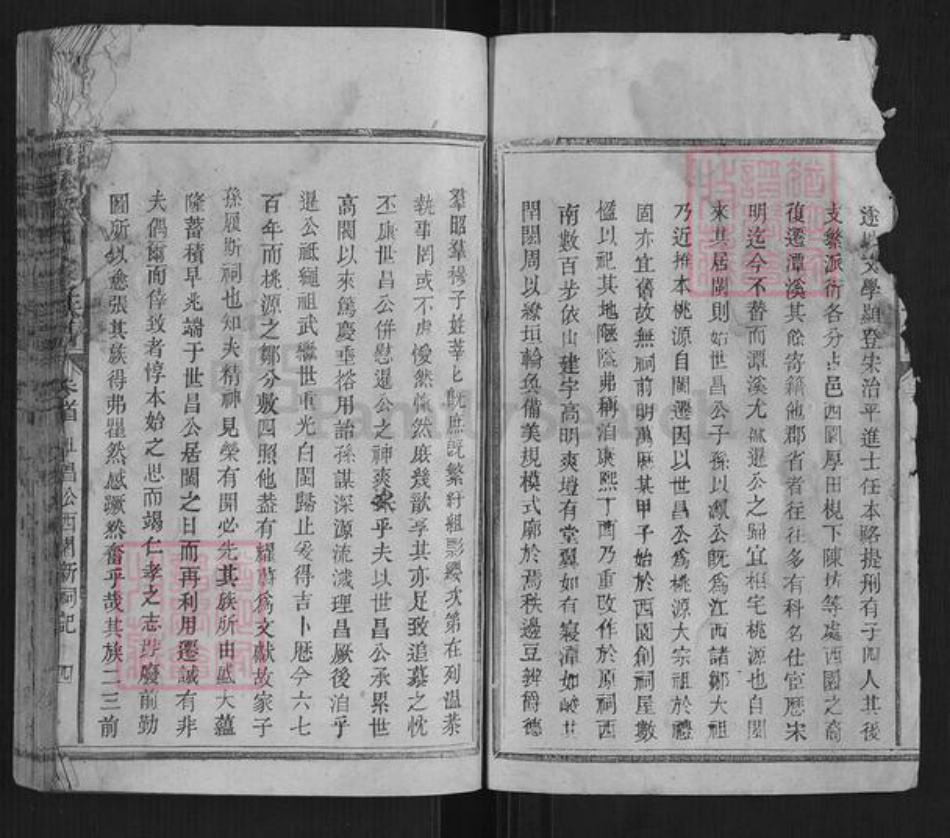 逵以文學顯登宋治平進士任本路提刑有子四人其後
支繁派衍各分占邑西園厚田梘下陳坊等處西園之裔
復遷潭溪其餘寄籍他郡省者往往多有科名仕宦歷宋
明迄今不替而潭溪尤盛暹公之歸宜相宅桃源也自閩
來其居閩則始世昌公子孫以鄴公既爲江西諸鄒大祖
乃近推本桃源自閩遷因以世昌公爲桃源大宗祖於禮
固亦宜舊故無祠前明萬曆某甲子始於西園創祠屋數
楹以祀其地陋隘弗稱洎康熙丁酉乃重改作於原祠西
南數百步依山建宇高明爽塏有堂翼如有寢漳如峻其
閈閎周以繚垣輪奐備美規模式廓於焉秩邊豆辨爵德
羣昭羣穆子姓莘七既庶既繁紆組影纓次第在列溫恭
執事罔或不虔僾然愾然庶幾歆享其亦足致追慕之忱
丕康世昌公併慰暹公之神爽矣乎夫以世昌公承累世
高閥以來篤慶垂裕用詒孫謀深源流濊理昌厥後洎乎
暹公祗繩祖武繼世重光自閩歸止爰得吉卜歷今六七
百年而桃源之鄒分敷四照他盍有耀蔚爲文獻故家子
孫履斯祠也知夫精神見榮有開必先其族所由盛大蘊
隆蓄積早兆端于世昌公居閩之日而再利用遷誠有非
夫偶爾而倖致者惇本始之思而竭仁孝之志踵慶前勤
圖所以愈張其族得弗瞿然感蹶然奮乎哉其族二三前
卷首 世昌公西園新祠記 四